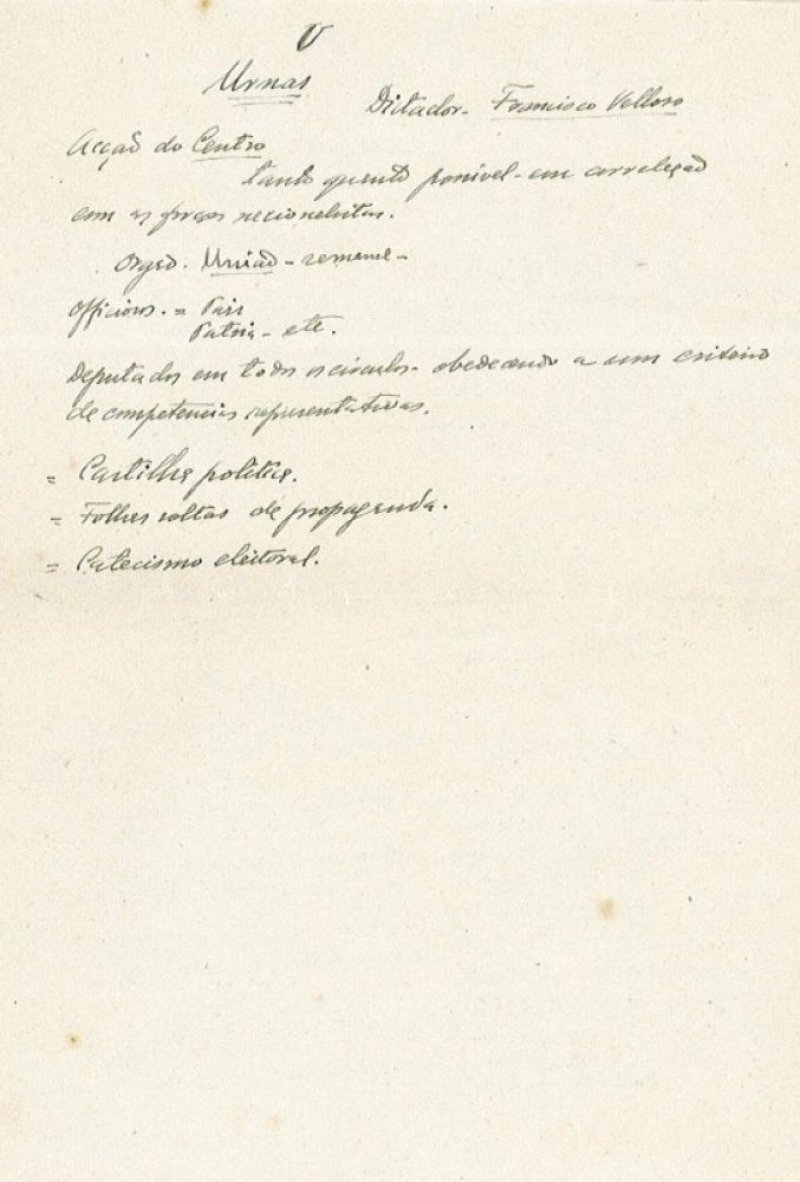 V
Urnas
Dictador - Francisco Velloso
Acção do Centro
tanto quanto possivel - em correlação
com as forças nacionalistas.
Orgão. União - semanal -
Officiosos. =
Patria - etc.
Deputados em todos os circulos - obedecendo a um criterio
de competencias representativas.
= Cartilha politica.
= Folhas soltas de propaganda.
= Catecismo eleitoral.